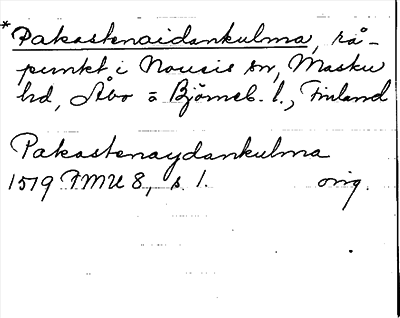 *Pakastenaidankulma, rå-
punkt i Nousis sn, Masku
hd, Åbo o Björneb. l., Finland
Pakastenaydankulma
1579 FMU 8, s. 1. orig.